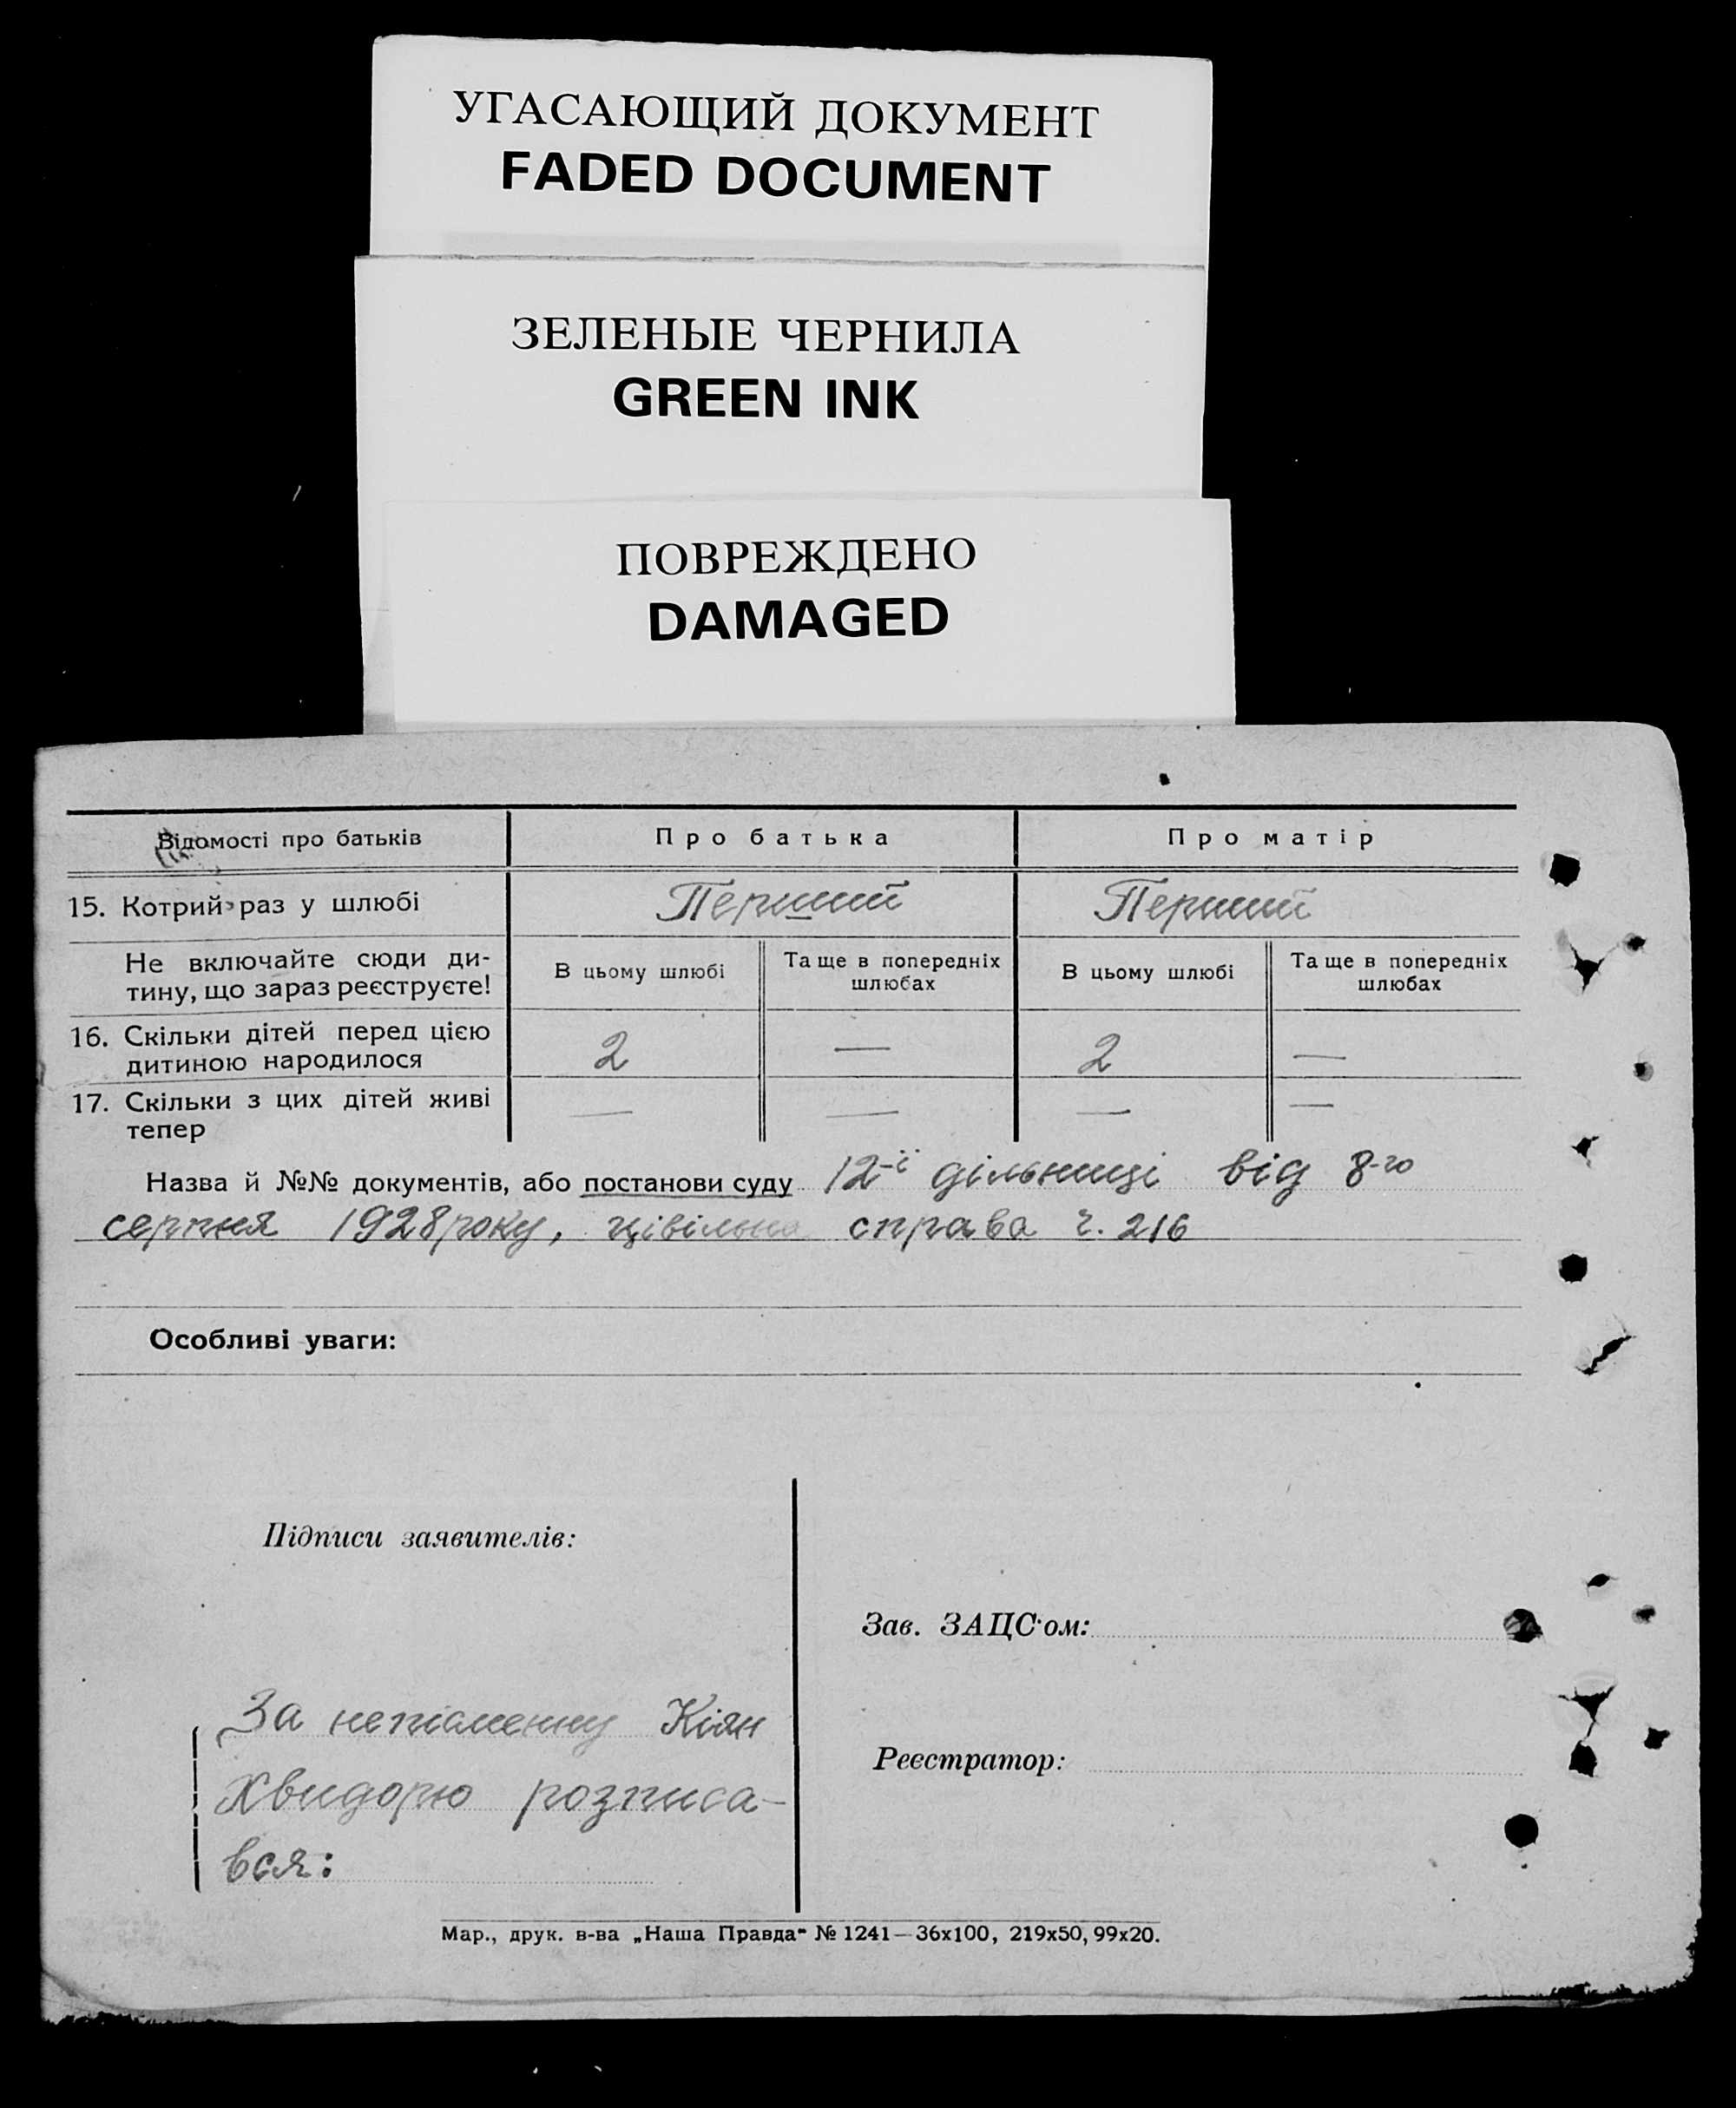 УГАСАЮЩИЙ ДОКУМЕНТ
FADED DOCUMENT
ЗЕЛЕНЫЕ ЧЕРНИЛА
GREEN INK
ПОВРЕЖДЕНО
DAMAGED
Відомості про батьків Про батька Про матір
15. Котрий раз у шлюбі Перший Перший
Не включайте сюди ди-
тину, що зараз реєструєте!
В цьому шлюбі
Та ще в попередніх
шлюбах
В цьому шлюбі
Та ще в попередніх
шлюбах
16. Скільки дітей перед цією
дитиною народилося 2 — 2 —
17. Скільки з цих дітей живі
тепер — — — —
Назва й №№ документів, або постанови суду 12-ї дільниці від 8-го
серпня 1928 року, цівільна справа ч. 216
Особливі уваги:
Підписи заявителів:
За неписьменну Кіян
Хвидорю розписа-
вся:
Зав. ЗАЦС'ом:
Реєстратор:
Мар., друк. в-ва „Наша Правда" № 1241—36х100, 219х50, 99х20.